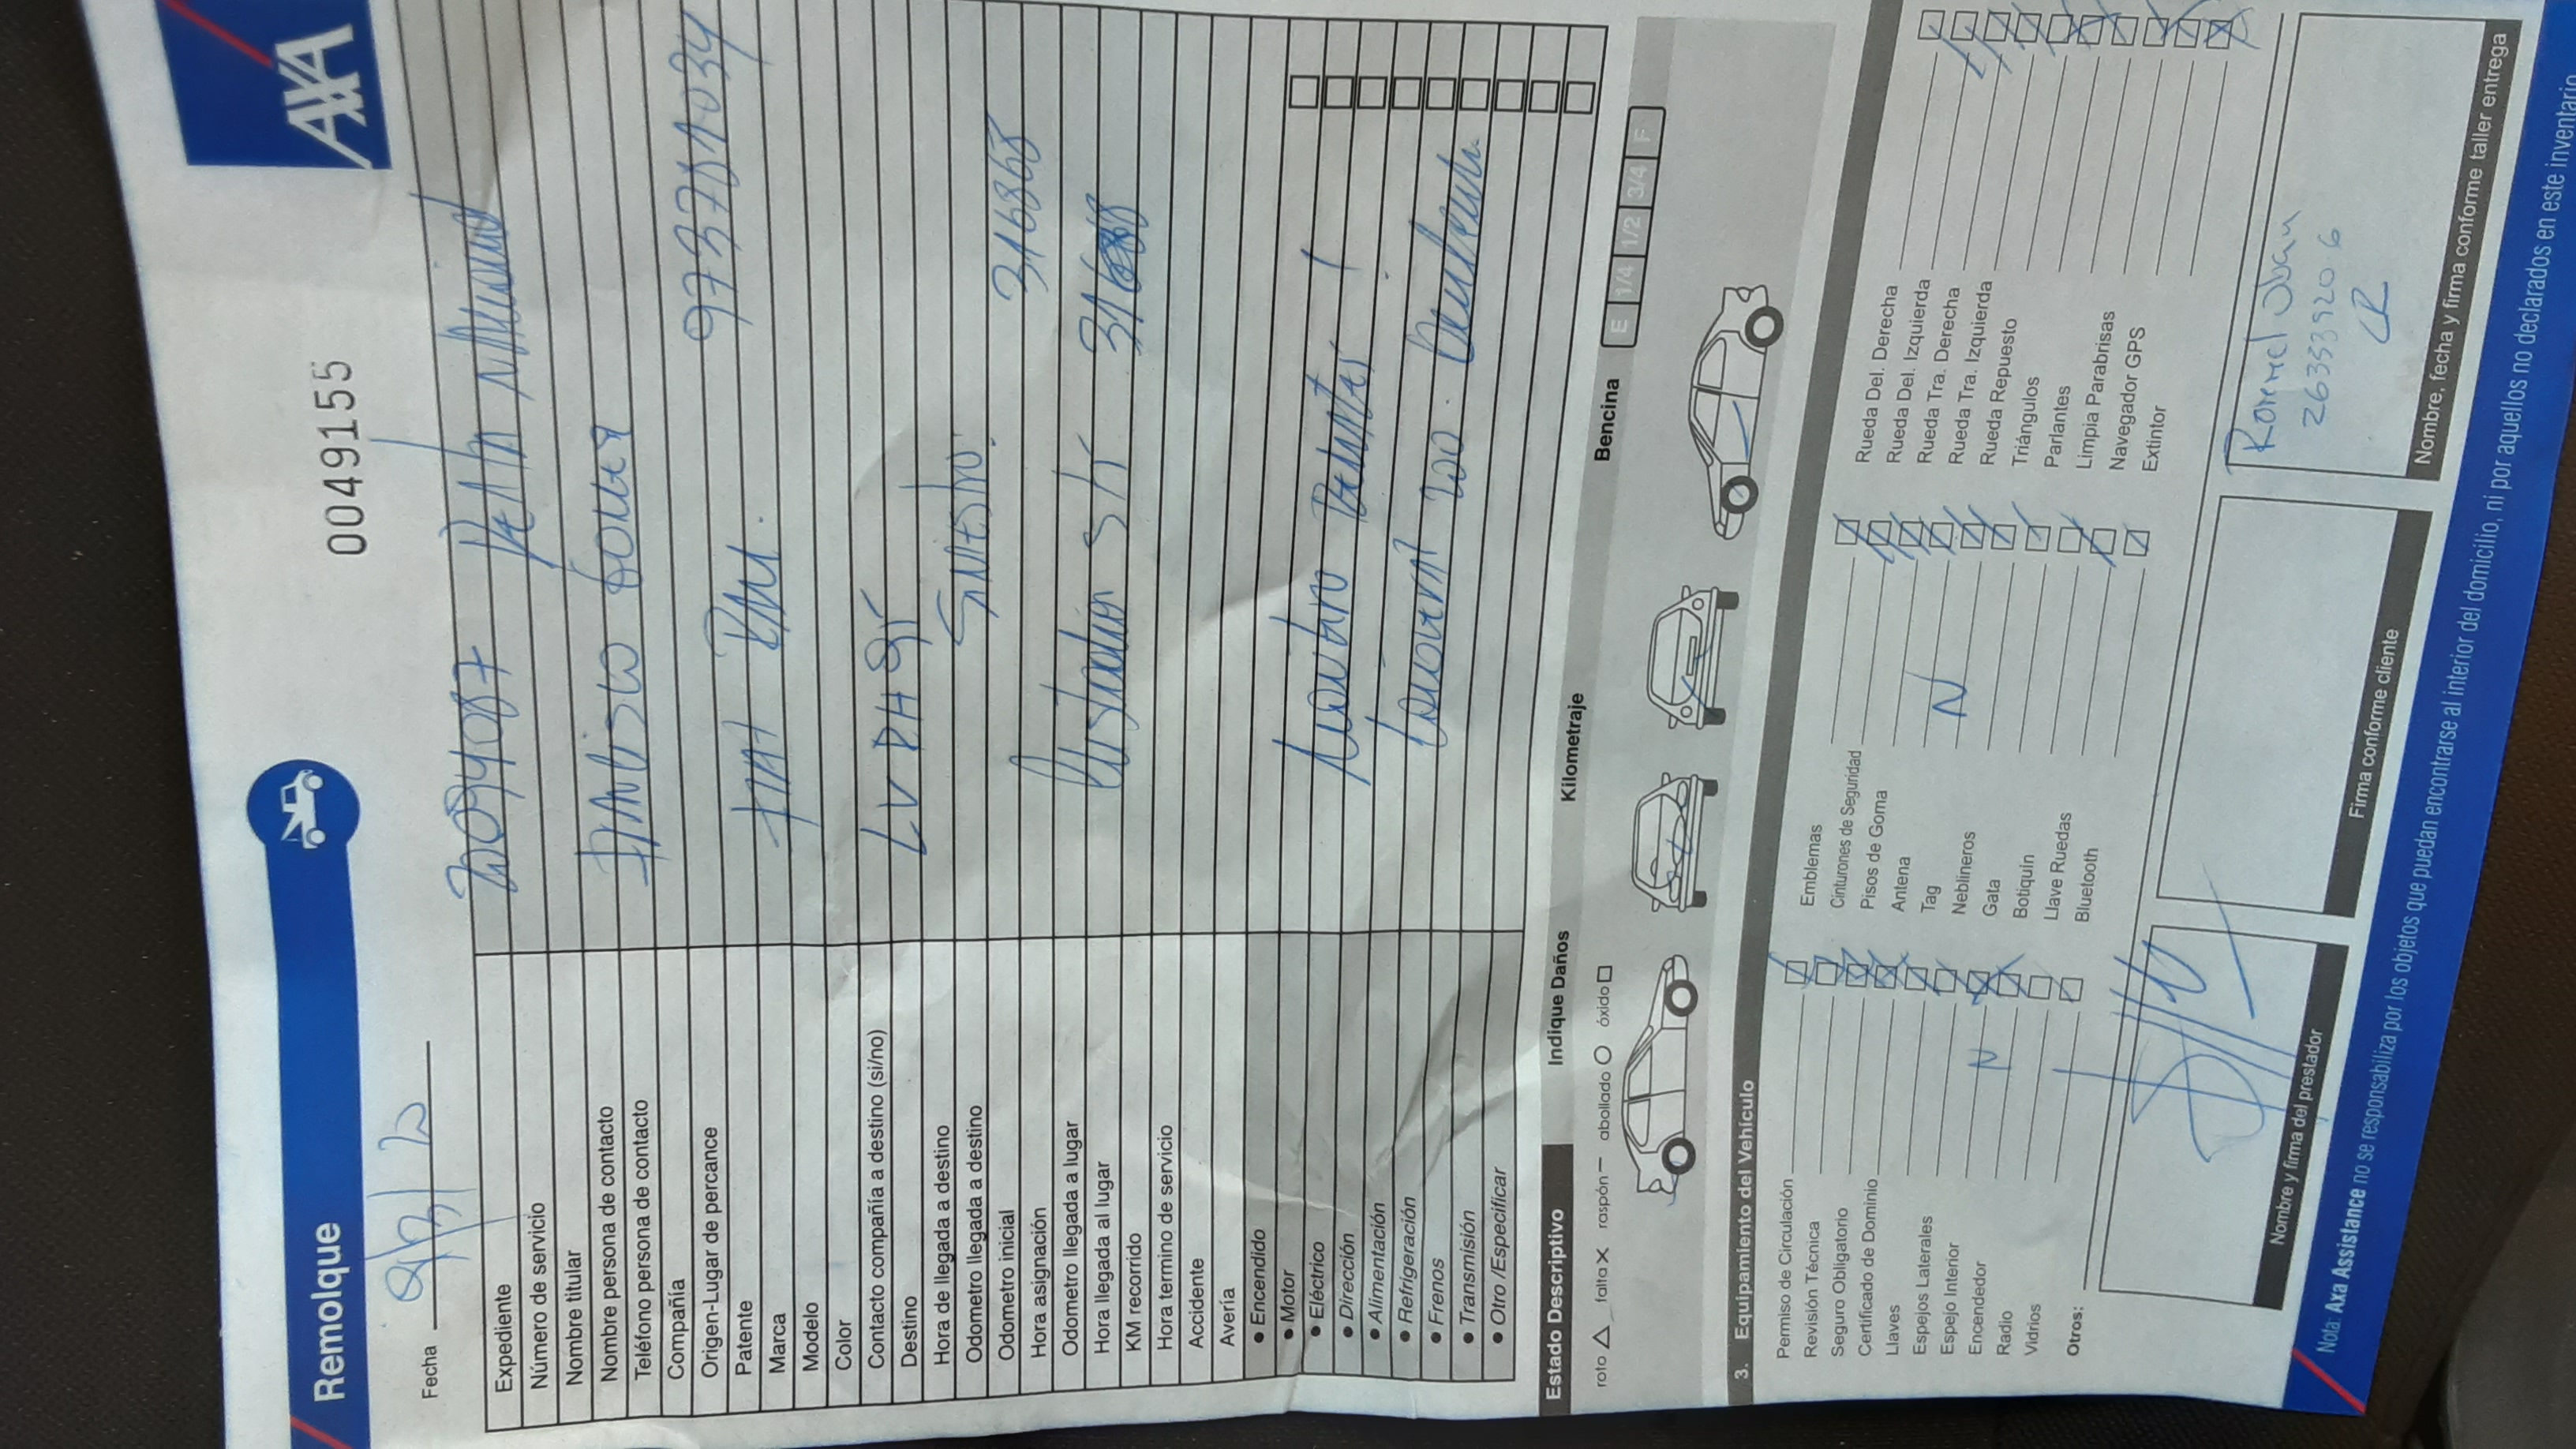 Remolque
AXA
0049155
Fecha
Expediente
Número de servicio
Nombre titular
Nombre persona de contacto
Teléfono persona de contacto
973781034
Compañía
Origen-Lugar de percance
Patente
Marca
Modelo
Color
Contacto compañía a destino (si/no)
Destino
Hora de llegada a destino
Odometro llegada a destino
Odometro inicial
Hora asignación
Odometro llegada a lugar
Hora llegada al lugar
KM recorrido
Hora termino de servicio
Accidente
Avería
• Encendido
• Motor
• Eléctrico
• Dirección
• Alimentación
• Refrigeración
• Frenos
• Transmisión
• Otro /Especificar
Estado Descriptivo Indique Daños Kilometraje Bencina
roto falta raspón abollado óxido
E 1/4 1/2 3/4 F
3. Equipamiento del Vehículo
Permiso de Circulación
Revisión Técnica
Seguro Obligatorio
Certificado de Dominio
Llaves
Espejos Laterales
Espejo Interior
Encendedor N
Radio
Vidrios
Otros:
Emblemas
Cinturones de Seguridad
Pisos de Goma
Antena
Tag N
Neblineros
Gata
Botiquin
Llave Ruedas
Bluetooth
Rueda Del. Derecha
Rueda Del. Izquierda
Rueda Tra. Derecha
Rueda Tra. Izquierda
Rueda Repuesto
Triángulos
Parlantes
Limpia Parabrisas
Navegador GPS
Extintor
Nombre y firma del prestador
Firma conforme cliente
26353920-6
Nombre, fecha y firma conforme taller entrega
Nota: Axa Assistance no se responsabiliza por los objetos que puedan encontrarse al interior del domicilio, ni por aquellos no declarados en este inventario